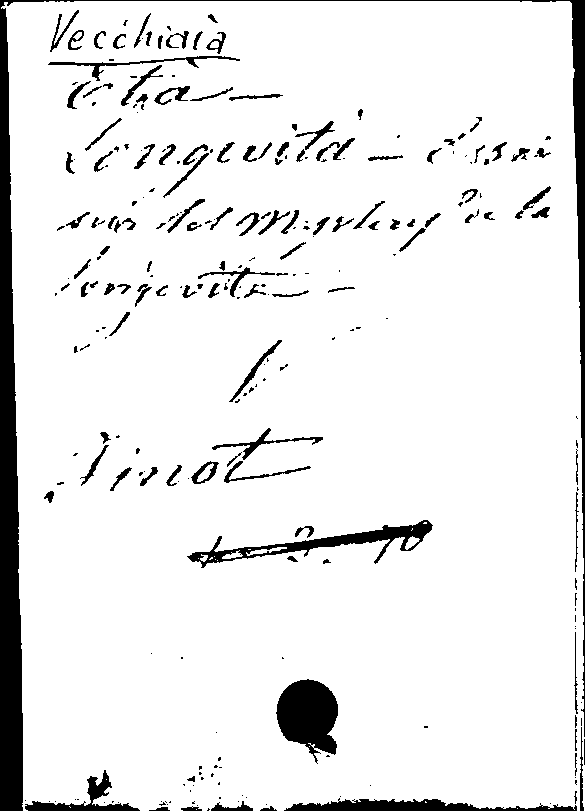 Vecchiaia
Età —
Longevità — Essai
sur les mystery de la
longévité —
V
Finot
1 3. 10